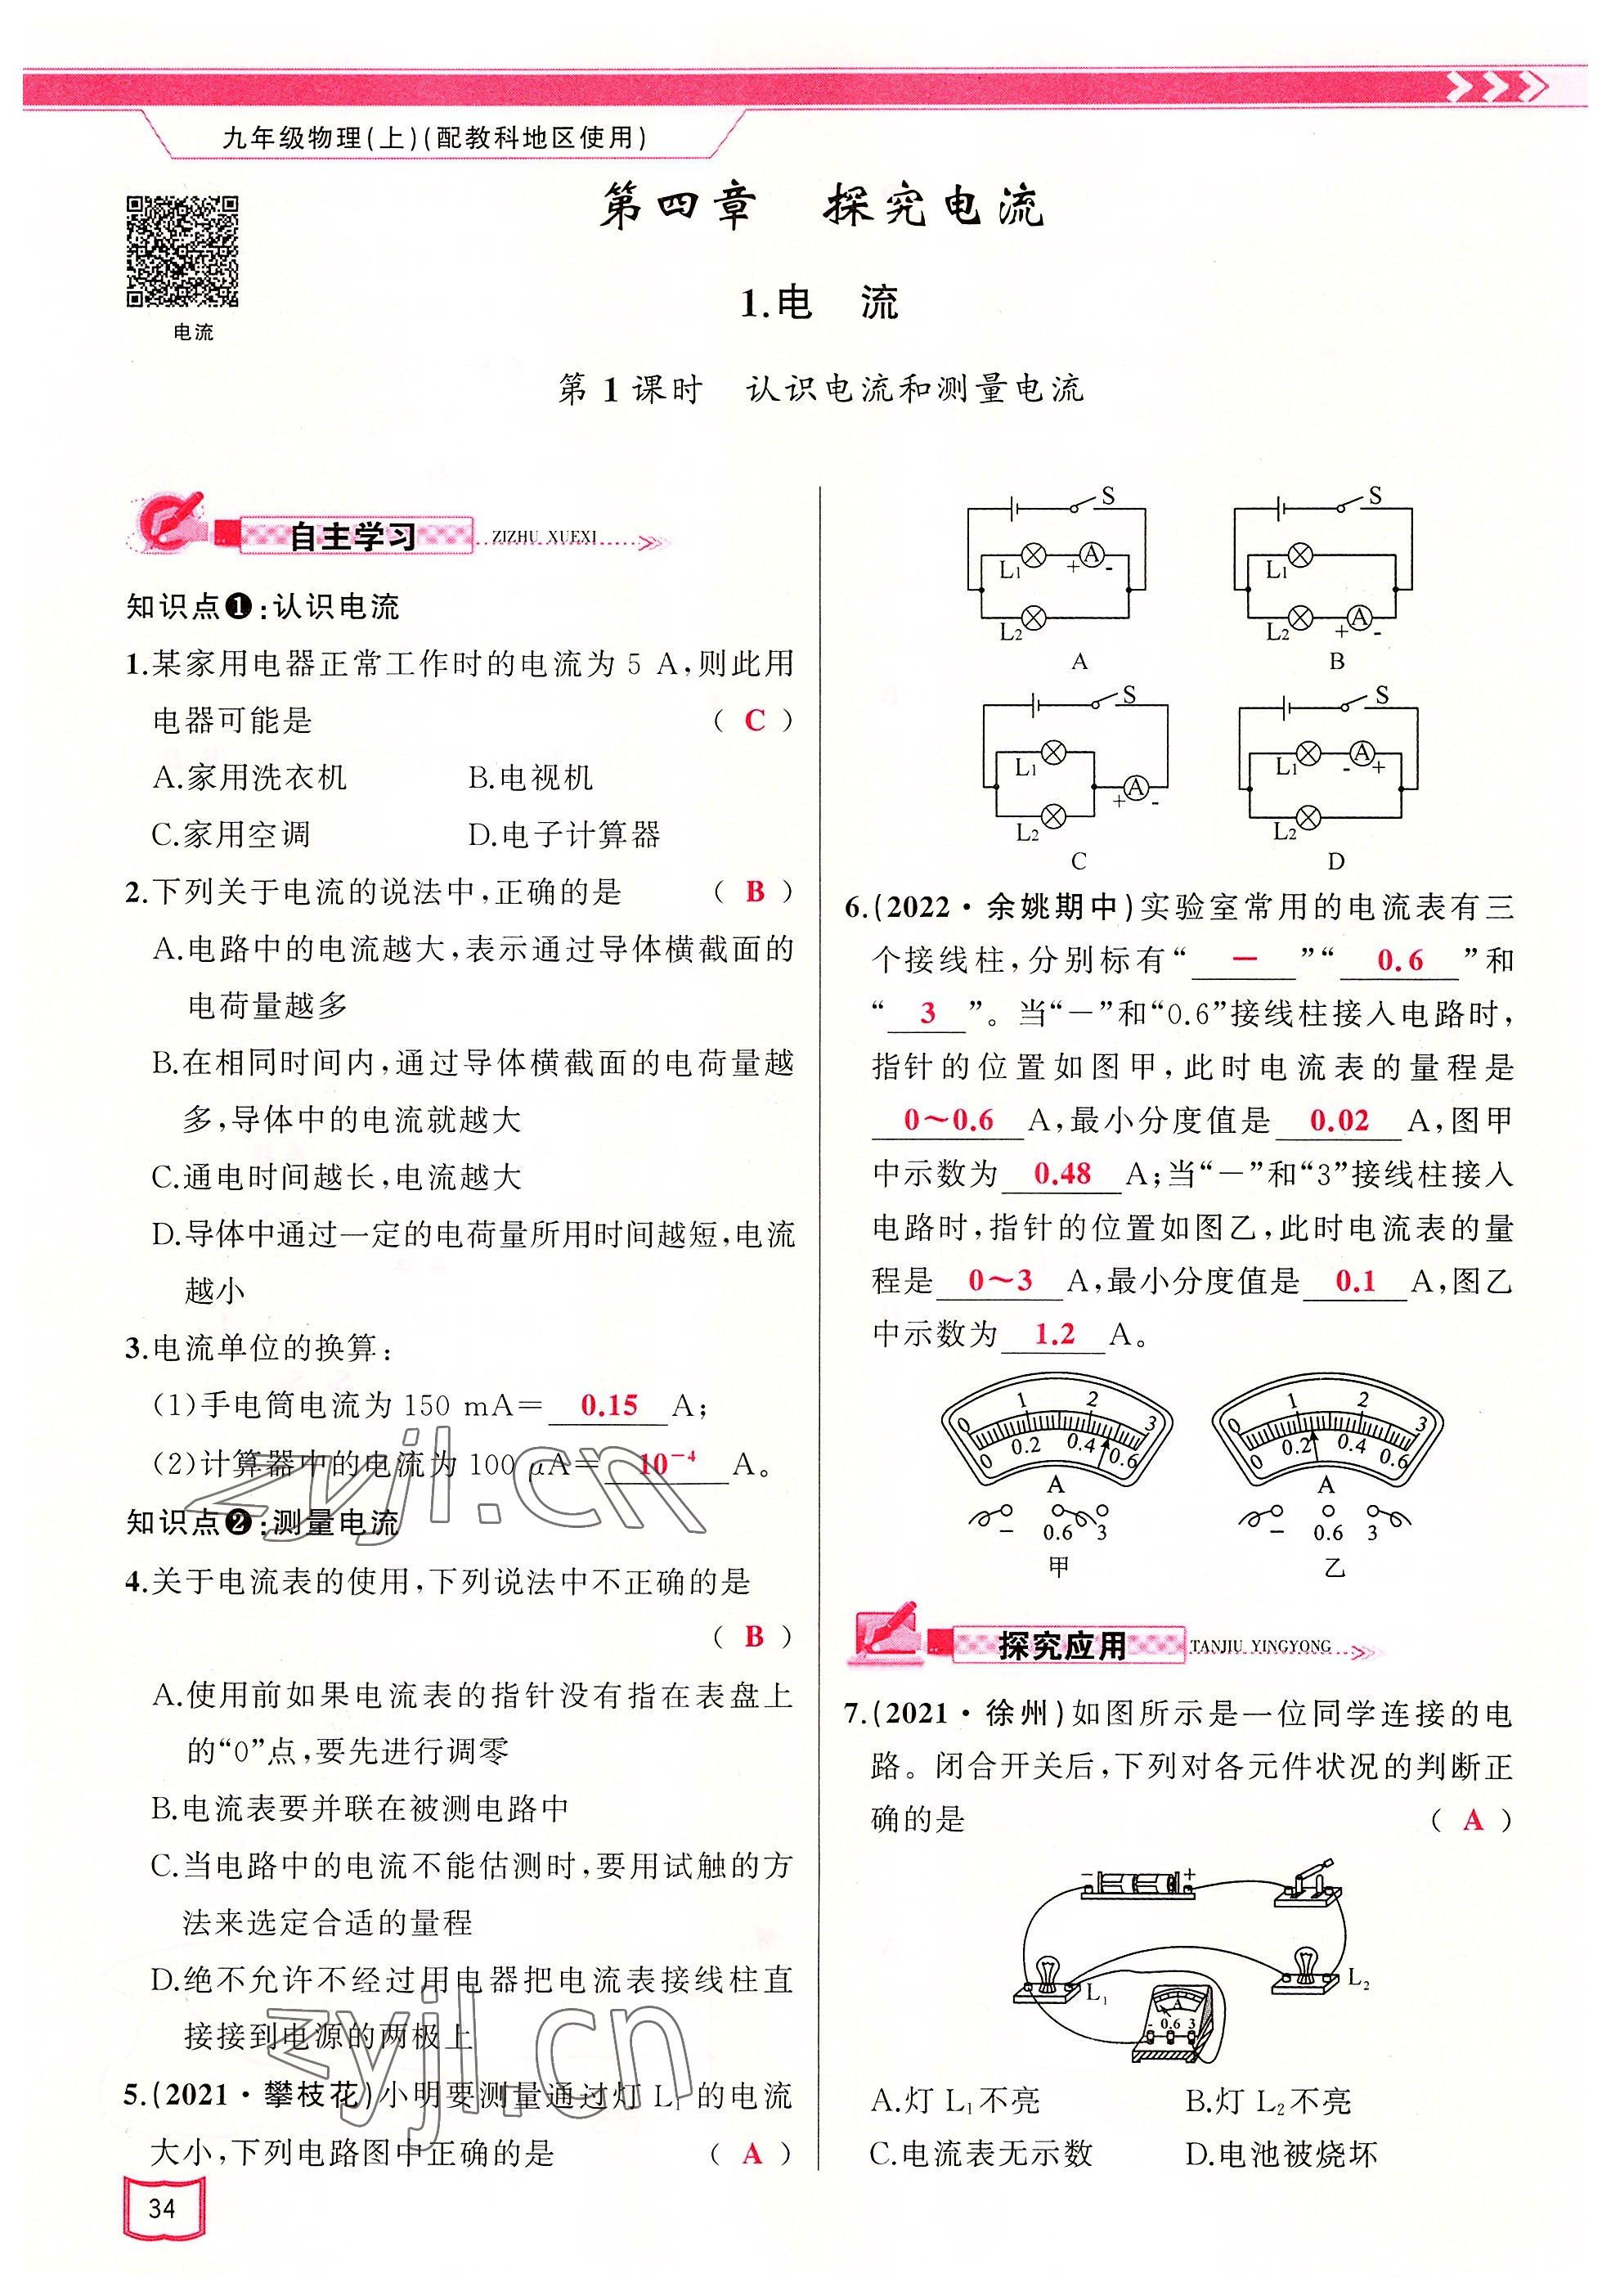 九年级物理(上)(配教科地区使用)
第四章 探究电流
电流
1.电 流
第1课时 认识电流和测量电流
自主学习 ZIZHU XUEXI
知识点❶:认识电流
1.某家用电器正常工作时的电流为 5 A,则此用
电器可能是 ( C )
A.家用洗衣机 B.电视机
C.家用空调 D.电子计算器
2.下列关于电流的说法中,正确的是 ( B )
A.电路中的电流越大,表示通过导体横截面的
电荷量越多
B.在相同时间内,通过导体横截面的电荷量越
多,导体中的电流就越大
C.通电时间越长,电流越大
D.导体中通过一定的电荷量所用时间越短,电流
越小
3.电流单位的换算:
(1)手电筒电流为 150 mA= 0.15 A;
(2)计算器中的电流为 100 μA= 10⁻⁴ A。
知识点❷:测量电流
4.关于电流表的使用,下列说法中不正确的是
( B )
A.使用前如果电流表的指针没有指在表盘上
的“0”点,要先进行调零
B.电流表要并联在被测电路中
C.当电路中的电流不能估测时,要用试触的方
法来选定合适的量程
D.绝不允许不经过用电器把电流表接线柱直
接接到电源的两极上
5.(2021·攀枝花)小明要测量通过灯 L₁ 的电流
大小,下列电路图中正确的是 ( A )
34
S S
L₁ A + - L₁
L₂ L₂ A + -
A B
S S
L₁ L₁ A - +
A + -
L₂ L₂
C D
6.(2022·余姚期中)实验室常用的电流表有三
个接线柱,分别标有“ － ”“ 0.6 ”和
“ 3 ”。当“－”和“0.6”接线柱接入电路时,
指针的位置如图甲,此时电流表的量程是
0～0.6 A,最小分度值是 0.02 A,图甲
中示数为 0.48 A;当“－”和“3”接线柱接入
电路时,指针的位置如图乙,此时电流表的量
程是 0～3 A,最小分度值是 0.1 A,图乙
中示数为 1.2 A。
0 1 2 3 0 1 2 3
0 0.2 0.4 0.6 0 0.2 0.4 0.6
A A
- 0.6 3 - 0.6 3
甲 乙
探究应用 TANJIU YINGYONG
7.(2021·徐州)如图所示是一位同学连接的电
路。闭合开关后,下列对各元件状况的判断正
确的是 ( A )
- +
L₁ L₂
A
- 0.6 3
A.灯 L₁不亮 B.灯 L₂不亮
C.电流表无示数 D.电池被烧坏
zyjl.cn
zyjl.cn